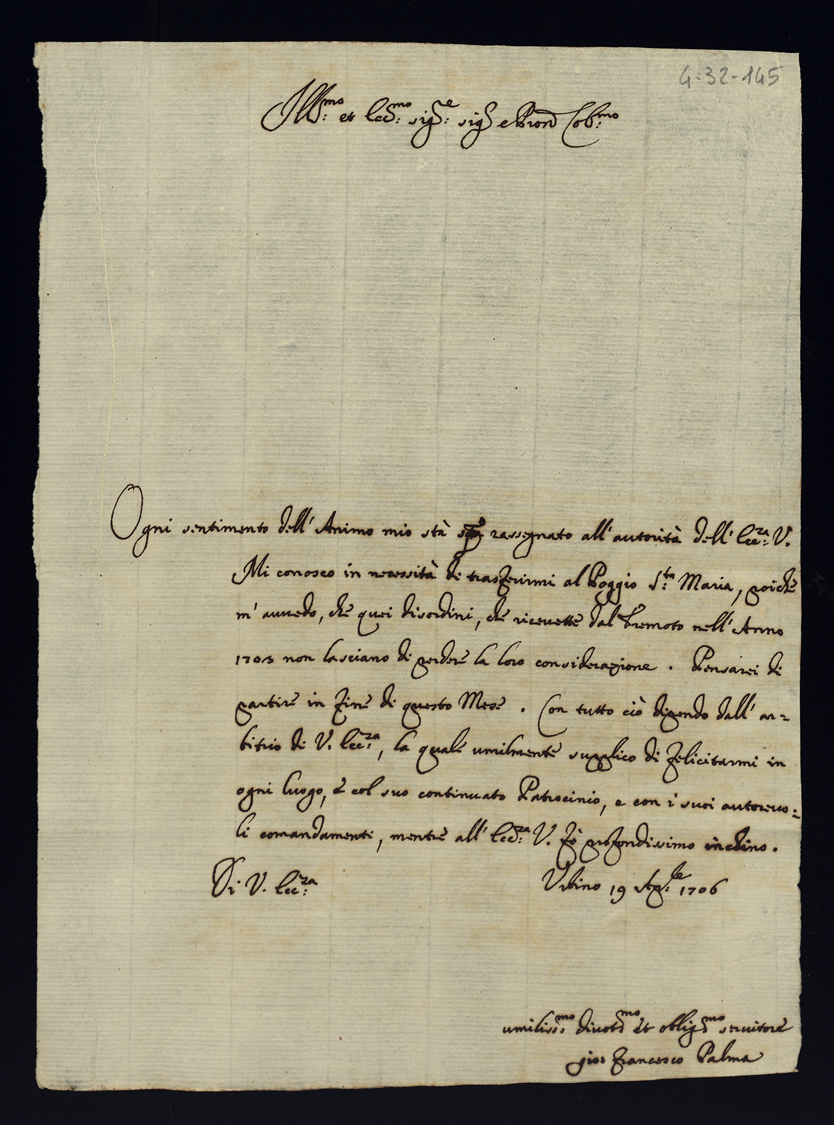 4-32-145
Ill:mo et Ecc:mo Sig:re Sig e Pron Col:mo
Ogni sentimento dell' Animo mio stà rassegnato all' autorità dell' Ecc:za V.
Mi conosco in necessità di trasferirmi al Poggio S:ta Maria, poiche
m' avvedo, che quei disordini, che ricevette dal Tremoto nell' Anno
1703 non lasciano di perdere la loro considerazione. Pensarei di
partire in fine di questo Mese. Con tutto ciò dipendo dall' ar=
bitrio di V. Ecc:za, la quale umilmente supplico di felicitarmi in
ogni luogo, e col suo continuato Patrocinio, e con i suoi autorevo=
li comandamenti, mentre all' Ecc:za V. fò profondissimo inchino.
Di V. Ecc:za
Urbino 19 Ap:le 1706
umiliss:mo divot:mo et oblig:mo servitore
Gio: Francesco Palma